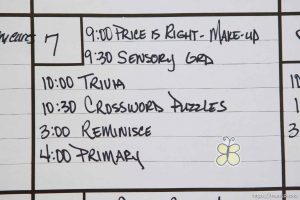 7
9:00 PRICE IS RIGHT - MAKE-UP
9:30 SENSORY GRD
10:00 TRIVIA
10:30 CROSSWORD PUZZLES
3:00 REMINISCE
4:00 PRIMARY